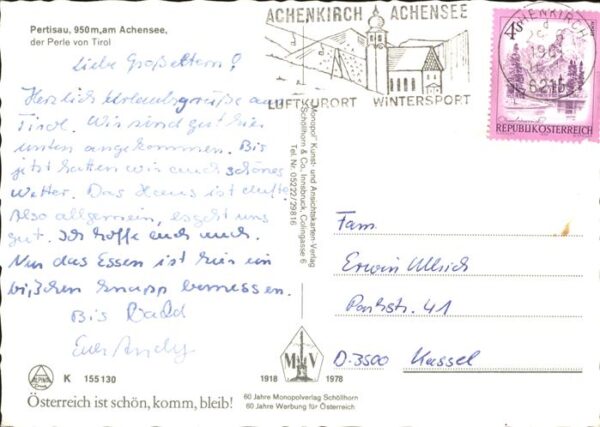 Pertisau, 950m, am Achensee,
der Perle von Tirol
Liebe Großeltern!
Herzlich Urlaubsgrüße aus
Tirol. Wir sind gut hier
unten angekommen. Bis
jetzt hatten wir auch schönes
Wetter. Das Haus ist dufte.
Also allgemein, es geht uns
gut. Ich hoffe euch auch.
Nur das Essen ist hier ein
bißchen knapp bemessen.
Bis Bald
Euer Andy
ALPINA
K 155130
Österreich ist schön, komm, bleib!
"Monopol" Kunst- und Ansichtskarten-Verlag
Schöllhorn & Co., Innsbruck, Colingasse 6
Tel. Nr. 05222/29816
MV
1918 1978
60 Jahre Monopolverlag Schöllhorn
60 Jahre Werbung für Österreich
ACHENKIRCH ACHENSEE
LUFTKURORT WINTERSPORT
ACHENKIRCH
d
6215
4S
REPUBLIK ÖSTERREICH
Fam.
Erwin Ullrich
Parkstr. 41
D-3500 Kassel